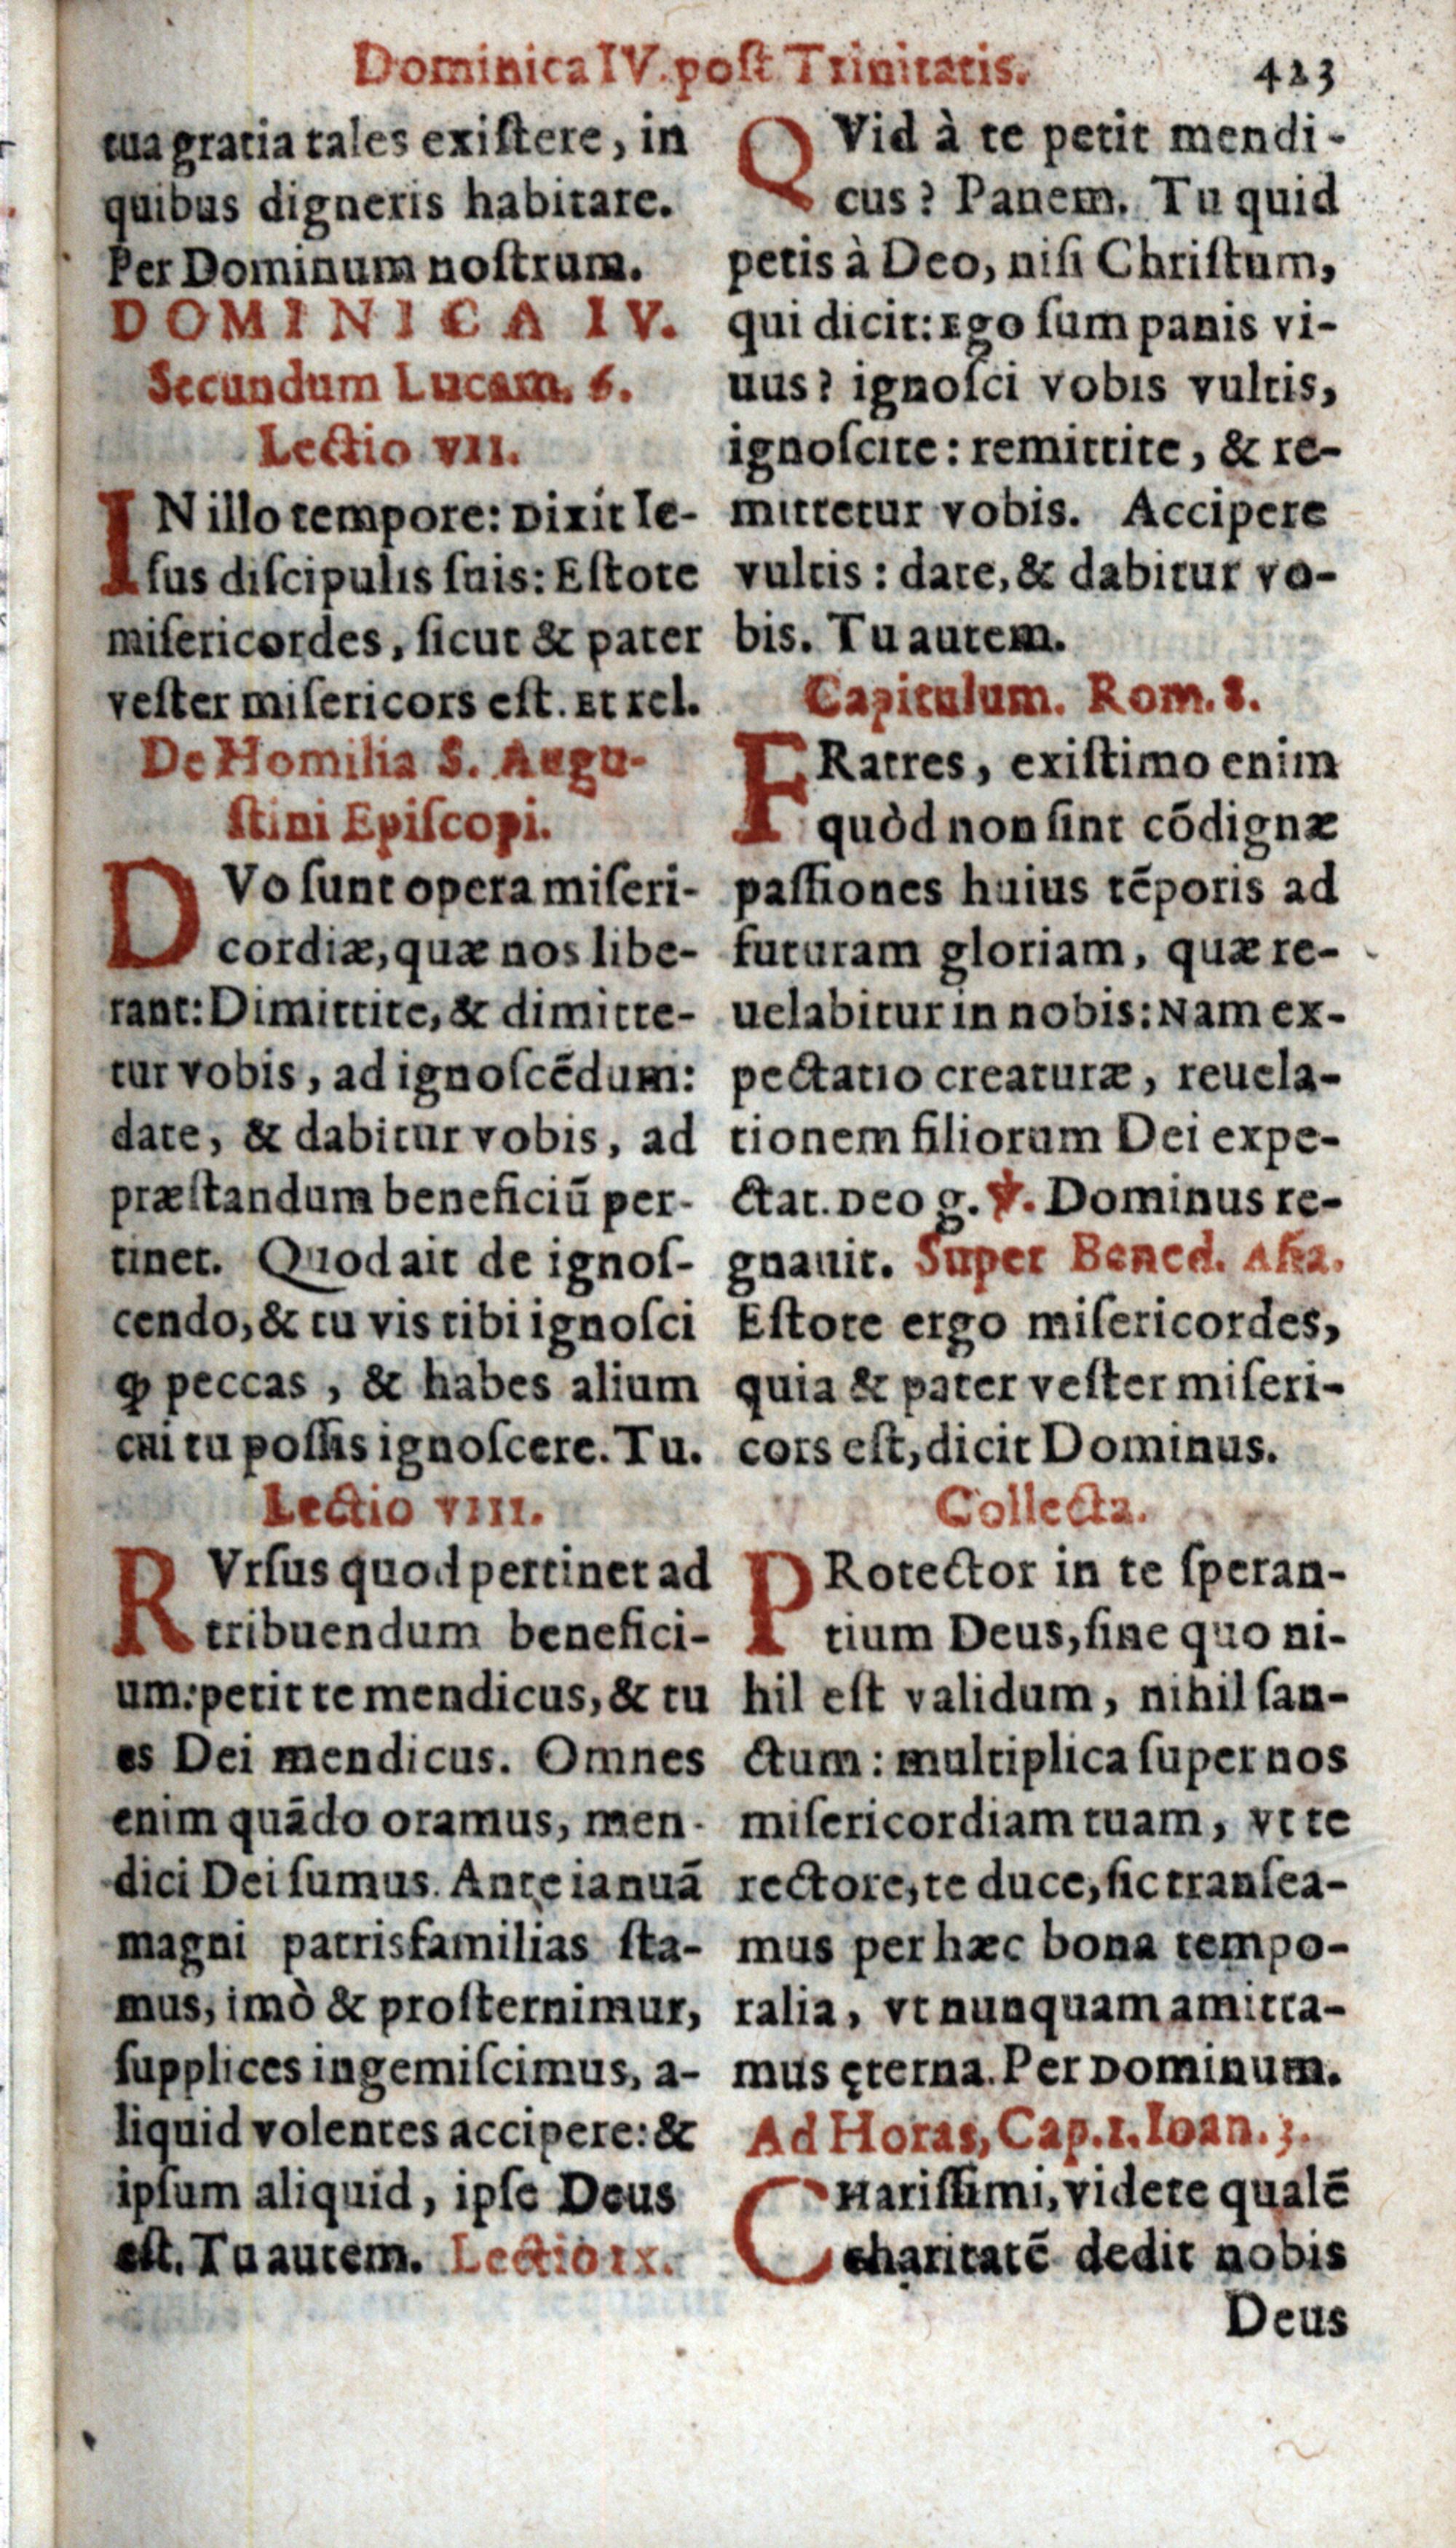 Dominica IV. poſt Trinitatis. 423
tua gratia tales exiſtere, in
quibus digneris habitare.
Per Dominum noſtrum.
DOMINICA IV.
Secundum Lucam. 6.
Lectio VII.
IN illo tempore: Dixit Ie-
ſus diſcipulis ſuis: Eſtote
miſericordes, ſicut & pater
veſter miſericors eſt. Et rel.
De Homilia S. Augu-
ſtini Epiſcopi.
DVo ſunt opera miſeri-
cordiæ, quæ nos libe-
rant: Dimittite, & dimitte-
tur vobis, ad ignoſcẽdum:
date, & dabitur vobis, ad
præſtandum beneficiũ per-
tinet. Quod ait de ignoſ-
cendo, & tu vis tibi ignoſci
ꝙ peccas, & habes alium
cui tu poſſis ignoſcere. Tu.
Lectio VIII.
RVrſus quod pertinet ad
tribuendum benefici-
um: petit te mendicus, & tu
es Dei mendicus. Omnes
enim quãdo oramus, men-
dici Dei ſumus. Ante ianuã
magni patrisfamilias ſta-
mus, imò & proſternimur,
ſupplices ingemiſcimus, a-
liquid volentes accipere: &
ipſum aliquid, ipſe Deus
eſt. Tu autem. Lectio IX.
QVid à te petit mendi-
cus? Panem. Tu quid
petis à Deo, niſi Chriſtum,
qui dicit: Ego ſum panis vi-
uus? ignoſci vobis vultis,
ignoſcite: remittite, & re-
mittetur vobis. Accipere
vultis: date, & dabitur vo-
bis. Tu autem.
Capitulum. Rom. 8.
FRatres, exiſtimo enim
quòd non ſint cõdignæ
paſſiones huius tẽporis ad
futuram gloriam, quæ re-
uelabitur in nobis: Nam ex-
pectatio creaturæ, reuela-
tionem filiorum Dei expe-
ctat. Deo g. ℣. Dominus re-
gnauit. Super Bened. Aña.
Eſtote ergo miſericordes,
quia & pater veſter miſeri-
cors eſt, dicit Dominus.
Collecta.
PRotector in te ſperan-
tium Deus, ſine quo ni-
hil eſt validum, nihil ſan-
ctum: multiplica ſuper nos
miſericordiam tuam, vt te
rectore, te duce, ſic tranſea-
mus per hæc bona tempo-
ralia, vt nunquam amitta-
mus ęterna. Per Dominum.
Ad Horas, Cap. 1. Ioan. 3.
CHariſſimi, videte qualẽ
charitatẽ dedit nobis
Deus